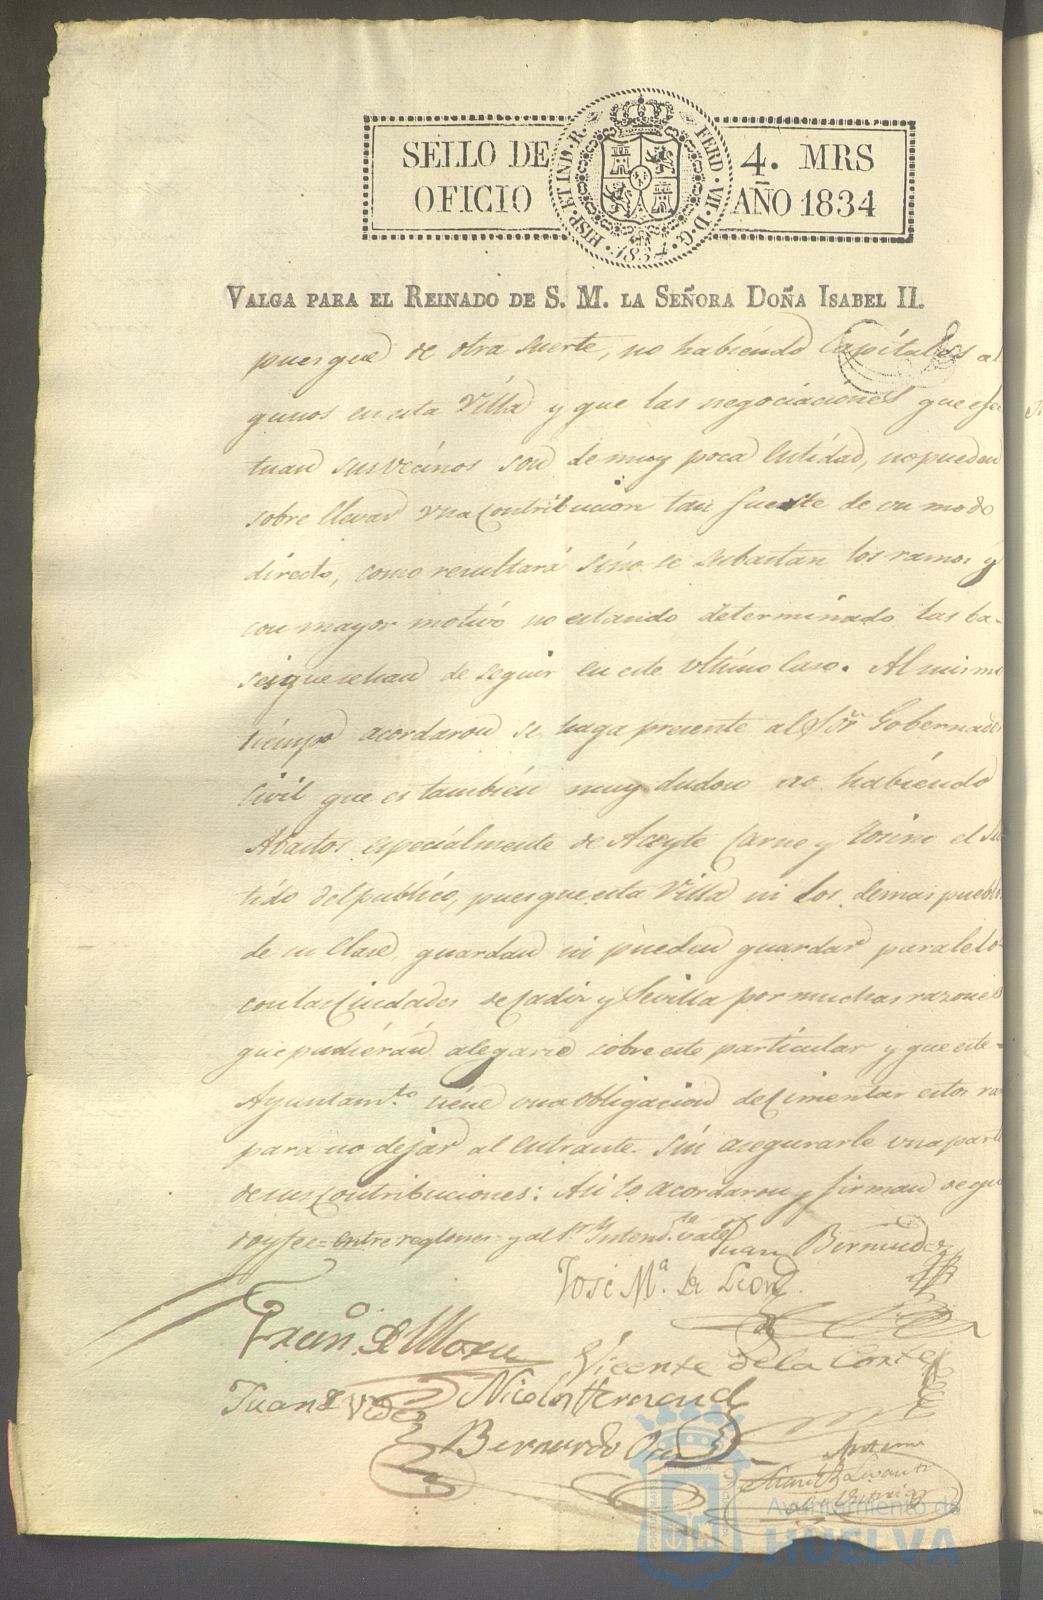 SELLO DE OFICIO
HISP. ET IND. R. FERD. VII. D. G. 1834.
4. MRS AÑO 1834
VALGA PARA EL REINADO DE S. M. LA SEÑORA DOÑA ISABEL II.
puesque de otra suerte, no habiendo Capitales al
gunos en esta Villa y que las negociaciones que efec
tuan sus vecinos son de muy poca Entidad, no pueden
sobre llevar una Contribucion tan fuerte de un modo
directo, como resultará sino se subastan los ramos y
con mayor motivo no estando determinado las ba-
ses que se han de seguir en este ultimo Caso. Al mismo
tiempo acordaron se haga presente al Sor Gobernador
Civil que es tambien muy dudoso no habiendo
Abastos especialmente de Aceyte Carne y Tosino el Sur
tido del publico, puesque esta Villa ni los demas pueblos
de su Clase guardan ni pueden guardar paralelo
con las Ciudades de Cadiz y Sevilla por muchas razones
que pudieran alegarse sobre este particular y que este
Ayuntamto tiene una obligacion de Cimentar estos ra
para no dejar al Entrante sin asegurarle una parte
de sus Contribuciones: Asi lo acordaron y firman de que
doy fee = Entre reglones = y al Sr Intendte Vale
Juan Bermudez
José Ma de Leon
Fran
Mora
Vicente de la Corte
Juan
Nicolas Hernand
Bernardo
Antemi
Ayuntamiento de
HUELVA